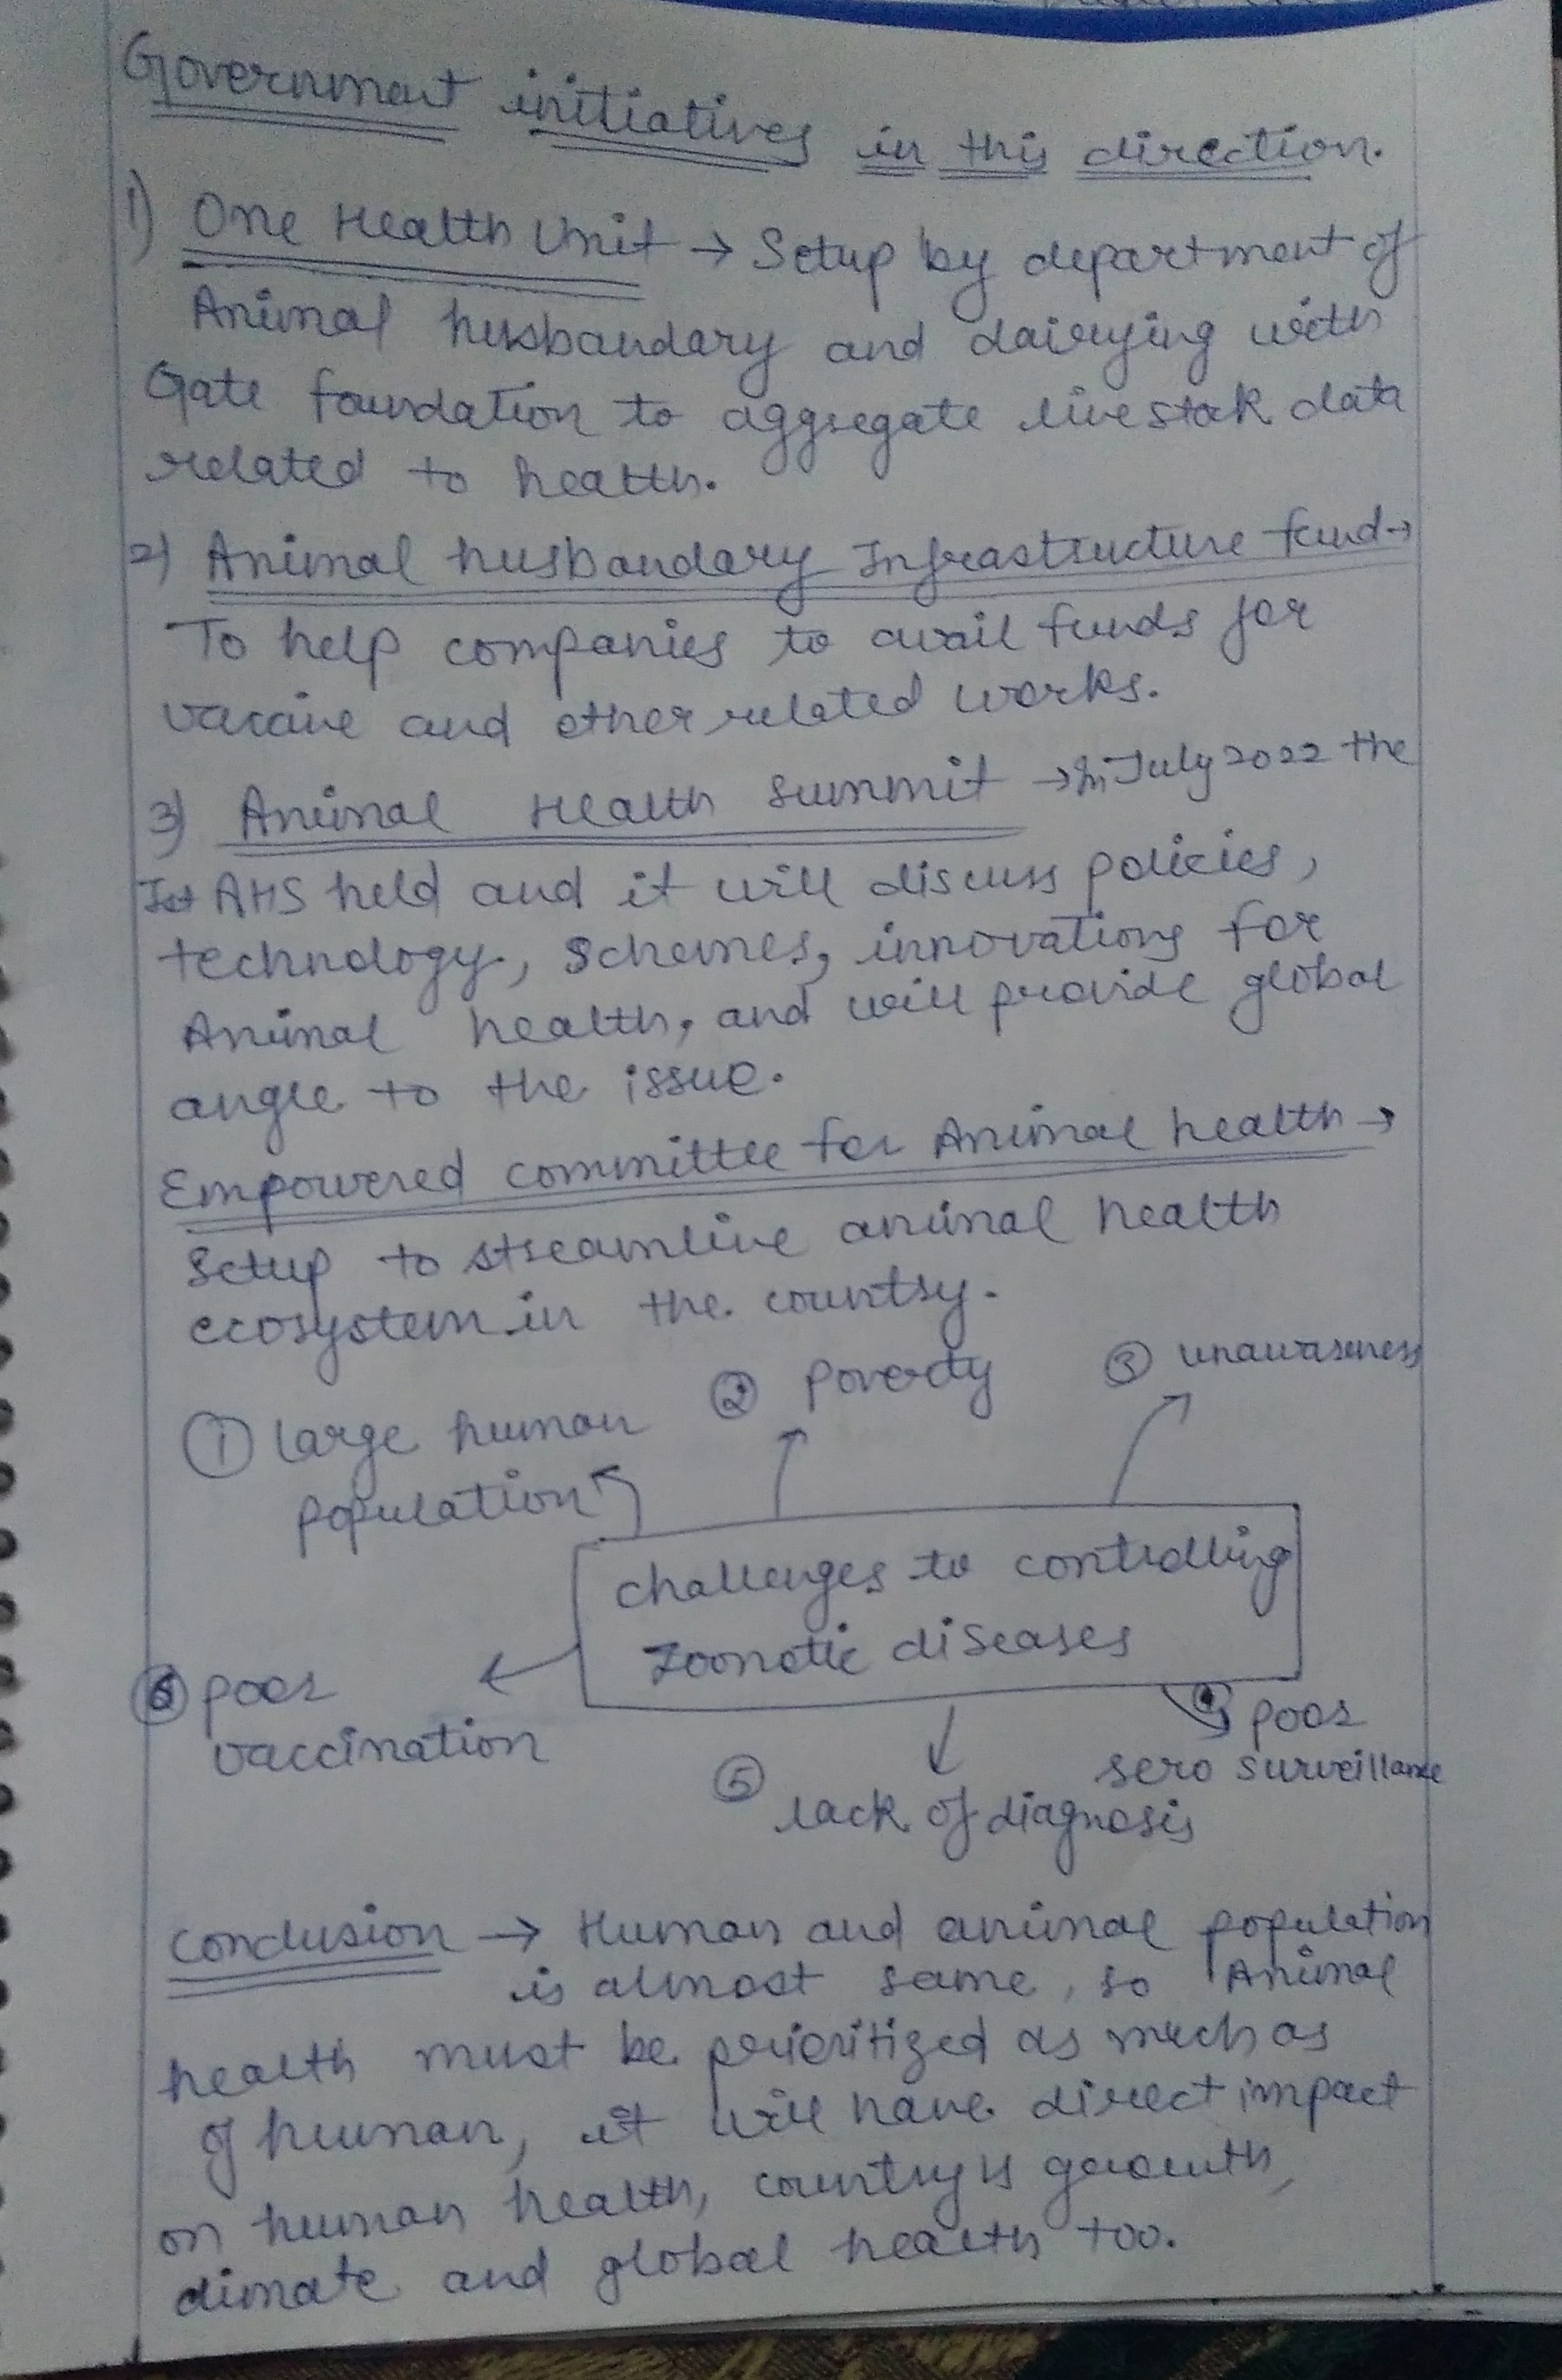 Government initiatives in this direction.
1) One Health Unit → Setup by department of
Animal husbandary and dairying with
Gate foundation to aggregate livestok data
related to health.
2) Animal husbandary Infrastructure fund→
To help companies to avail funds for
vaccine and other related works.
3) Animal Health Summit → In July 2022 the
Ist AHS held and it will discuss policies,
technology, schemes, innovations for
Animal health, and will provide global
angle to the issue.
Empowered committee for Animal health →
Setup to streamline animal health
ecosystem in the country.
① large human
population
② poverty
③ unawareness
challenges to controlling
zoonotic diseases
④ poor
sero surveillance
⑤
lack of diagnosis
⑥ poor
vaccination
Conclusion → Human and animal population
is almost same, so Animal
health must be prioritized as much as
of human, it will have direct impact
on human health, country's growth,
climate and global health too.